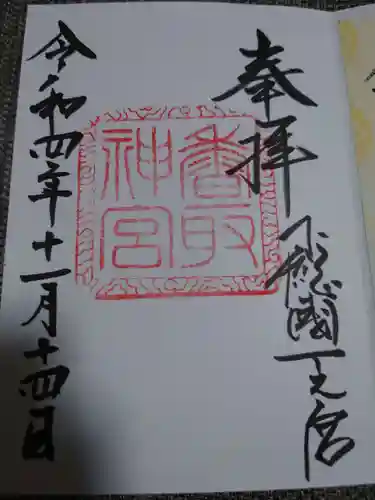 奉拝
下総國一之宮
香取神宮
令和四年十一月十四日